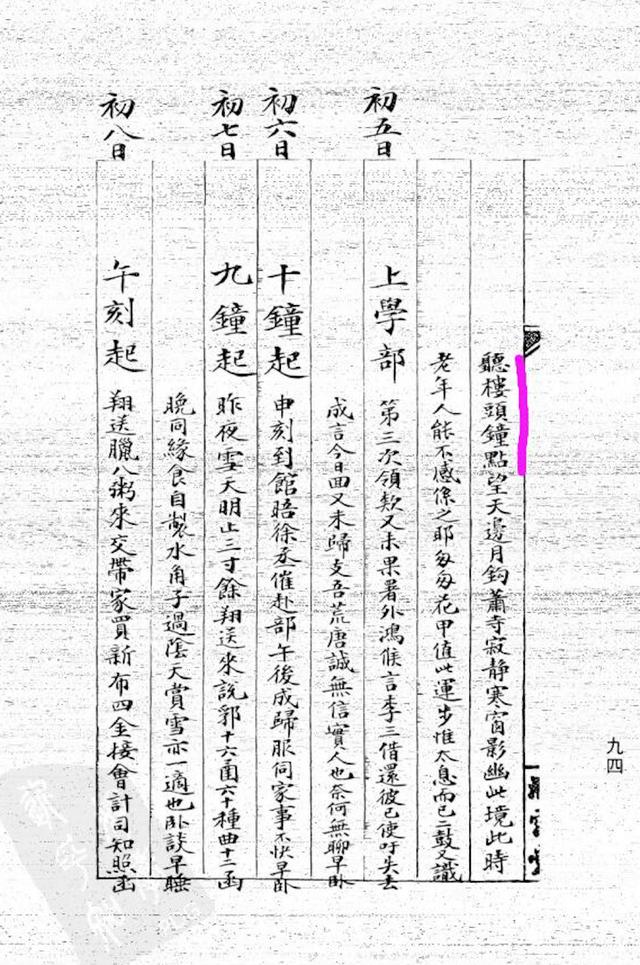 聽樓頭鐘點望天邊月鈎蕭寺寂静寒窗影幽此境此時
老年人能不感係之耶匆匆花甲值此運步惟太息而已二鼓又識
初五日 上學部 第三次領欵又未果署外鴻候言李三借還彼已使吁失去
成言今日面又未歸支吾荒唐誠無信實人也奈何無聊早卧
初六日 十鐘起 申刻到館晤徐丞催赴部午後成歸服伺家事不快早卧
初七日 九鐘起 昨夜雪天明止三寸餘翔送來說郛十六函六十種曲十二函
晚同緣食自製水角子過陰天賞雪亦一適也卧談早睡
初八日 午刻起 翔送臘八粥來交帶家買新布四金接會計司知照函
九四